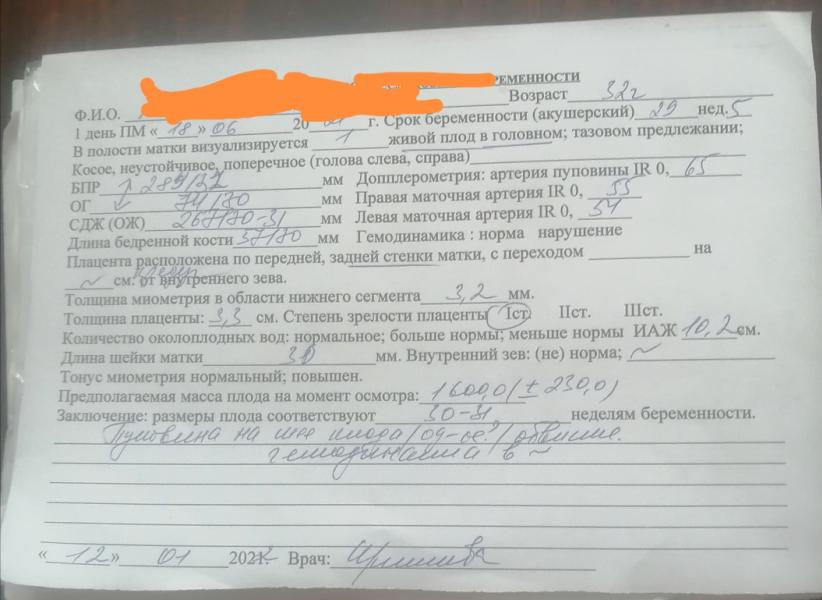 РЕМЕННОСТИ
Ф.И.О. Возраст 32г
1 день ПМ «18» 06 20 21 г. Срок беременности (акушерский) 29 нед. 5
В полости матки визуализируется 1 живой плод в головном; тазовом предлежании;
Косое, неустойчивое, поперечное (голова слева, справа)
БПР 289/32 мм Допплерометрия: артерия пуповины IR 0, 65
ОГ 74/80 мм Правая маточная артерия IR 0, 55
СДЖ (ОЖ) 267/70-31 мм Левая маточная артерия IR 0, 54
Длина бедренной кости 57/70 мм Гемодинамика : норма нарушение
Плацента расположена по передней, задней стенки матки, с переходом на
~ см. от внутреннего зева.
Толщина миометрия в области нижнего сегмента 3,2 мм.
Толщина плаценты: 3,3 см. Степень зрелости плаценты Iст. IIст. IIIст.
Количество околоплодных вод: нормальное; больше нормы; меньше нормы ИАЖ 10,2 см.
Длина шейки матки 30 мм. Внутренний зев: (не) норма; ~
Тонус миометрия нормальный; повышен.
Предполагаемая масса плода на момент осмотра: 1600,0 (± 230,0)
Заключение: размеры плода соответствуют 30-31 неделям беременности.
Пуповина на шее плода /од-ое?/ обвитие.
гемодинамика в ~
«12» 01 202 Врач: